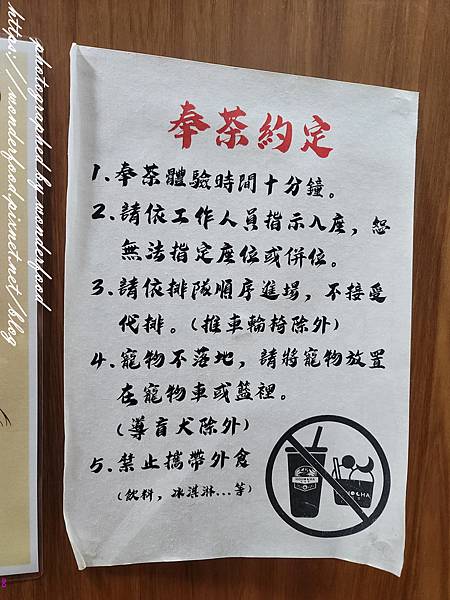 奉茶約定
1.奉茶體驗時間十分鐘。
2.請依工作人員指示入座，恕
無法指定座位或併位。
3.請依排隊順序進場，不接受
代排。(推車輪椅除外)
4.寵物不落地，請將寵物放置
在寵物車或籃裡。
(導盲犬除外)
5.禁止攜帶外食
(飲料，冰淇淋...等)
photographed by wonderfood
https://wonderfood.pixnet.net/blog